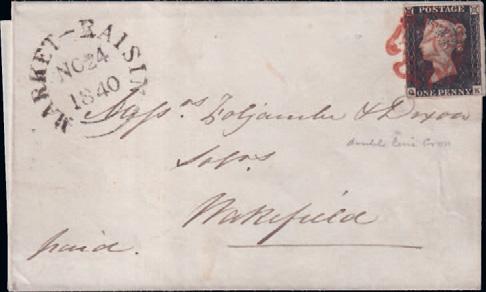 MARKET-RAISIN
NO 24
1840
POSTAGE
ONE PENNY
Messrs Foljambe & Dixon
Solrs
Wakefield
paid.
double line Cross